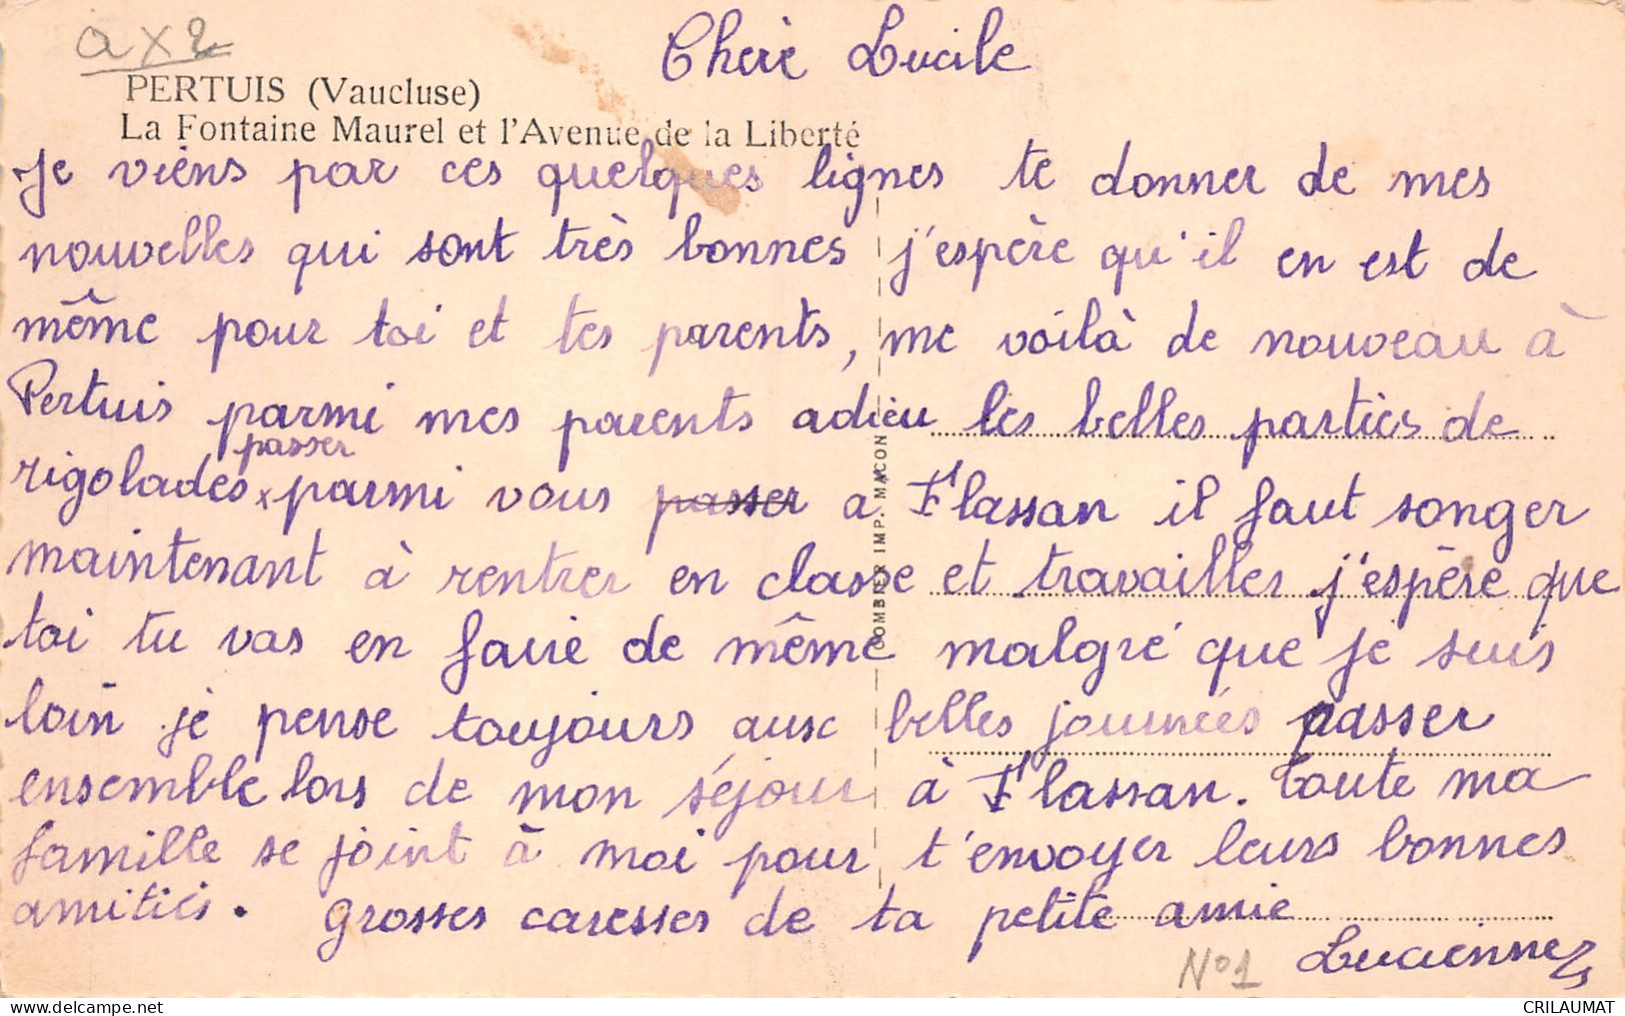 a x 2
Chere Lucile
PERTUIS (Vaucluse)
La Fontaine Maurel et l'Avenue de la Liberté
Je viens par ces quelques lignes te donner de mes
nouvelles qui sont très bonnes j'espère qu'il en est de
même pour toi et tes parents, me voilà de nouveau à
Pertuis parmi mes parents adieu les belles parties de
passer
rigolades x parmi vous passer a Flassan il faut songer
maintenant à rentrer en classe et travailler j'espère que
toi tu vas en faire de même malgré que je suis
loin je pense toujours aux belles journées passer
ensemble lors de mon séjour à Flassan. Toute ma
famille se joint à moi pour t'envoyer leurs bonnes
amitiés. grosses caresses de ta petite amie
Lucienne
N°1
COMBIER IMP. MACON
CRILAUMAT